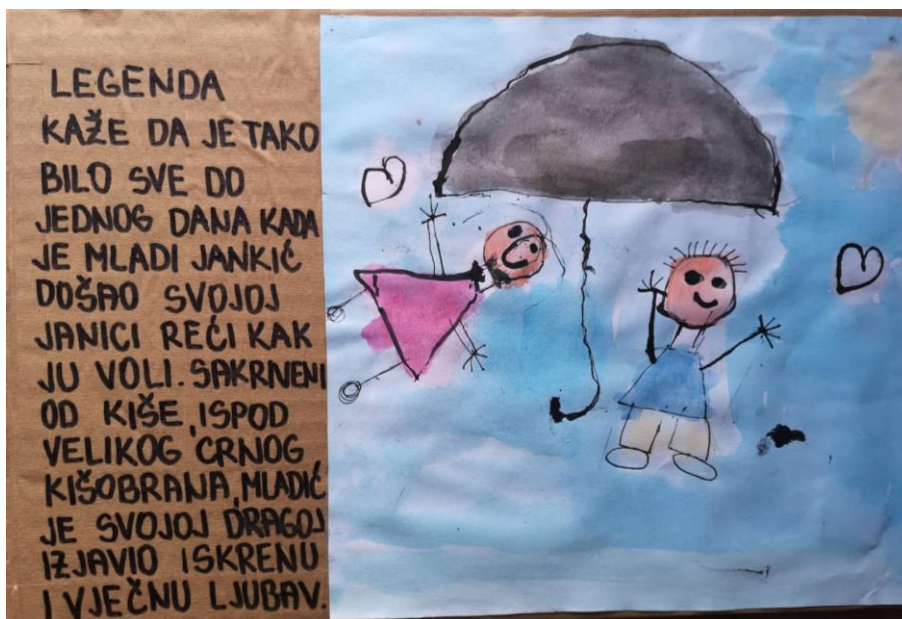 LEGENDA
KAŽE DA JE TAKO
BILO SVE DO
JEDNOG DANA KADA
JE MLADI JANKIĆ
DOŠAO SVOJOJ
JANICI REĆI KAK
JU VOLI. SAKRNENI
OD KIŠE, ISPOD
VELIKOG CRNOG
KIŠOBRANA, MLADIĆ
JE SVOJOJ DRAGOJ
IZJAVIO ISKRENU
I VJEČNU LJUBAV.